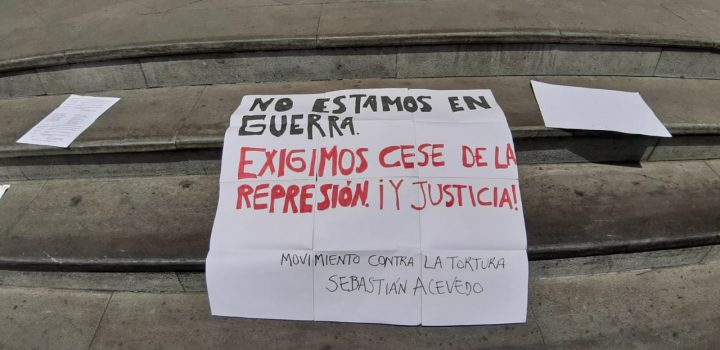 NO ESTAMOS EN
GUERRA.
EXIGIMOS CESE DE LA
REPRESIÓN. ¡Y JUSTICIA!
MOVIMIENTO CONTRA LA TORTURA
SEBASTIÁN ACEVEDO